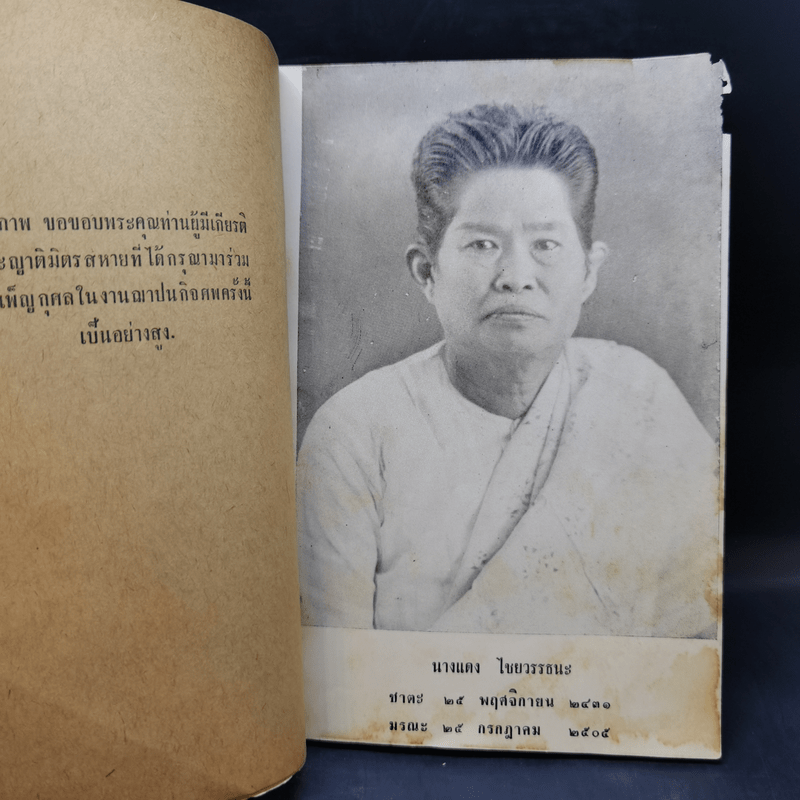 ภาพ ขอขอบพระคุณท่านผู้มีเกียรติ
ะญาติมิตรสหายที่ได้กรุณามาร่วม
เพ็ญกุศลในงานฌาปนกิจศพครั้งนี้
เป็นอย่างสูง.
นางแดง ไชยวรรธนะ
ชาตะ ๒๕ พฤศจิกายน ๒๔๓๑
มรณะ ๒๕ กรกฎาคม ๒๕๐๕